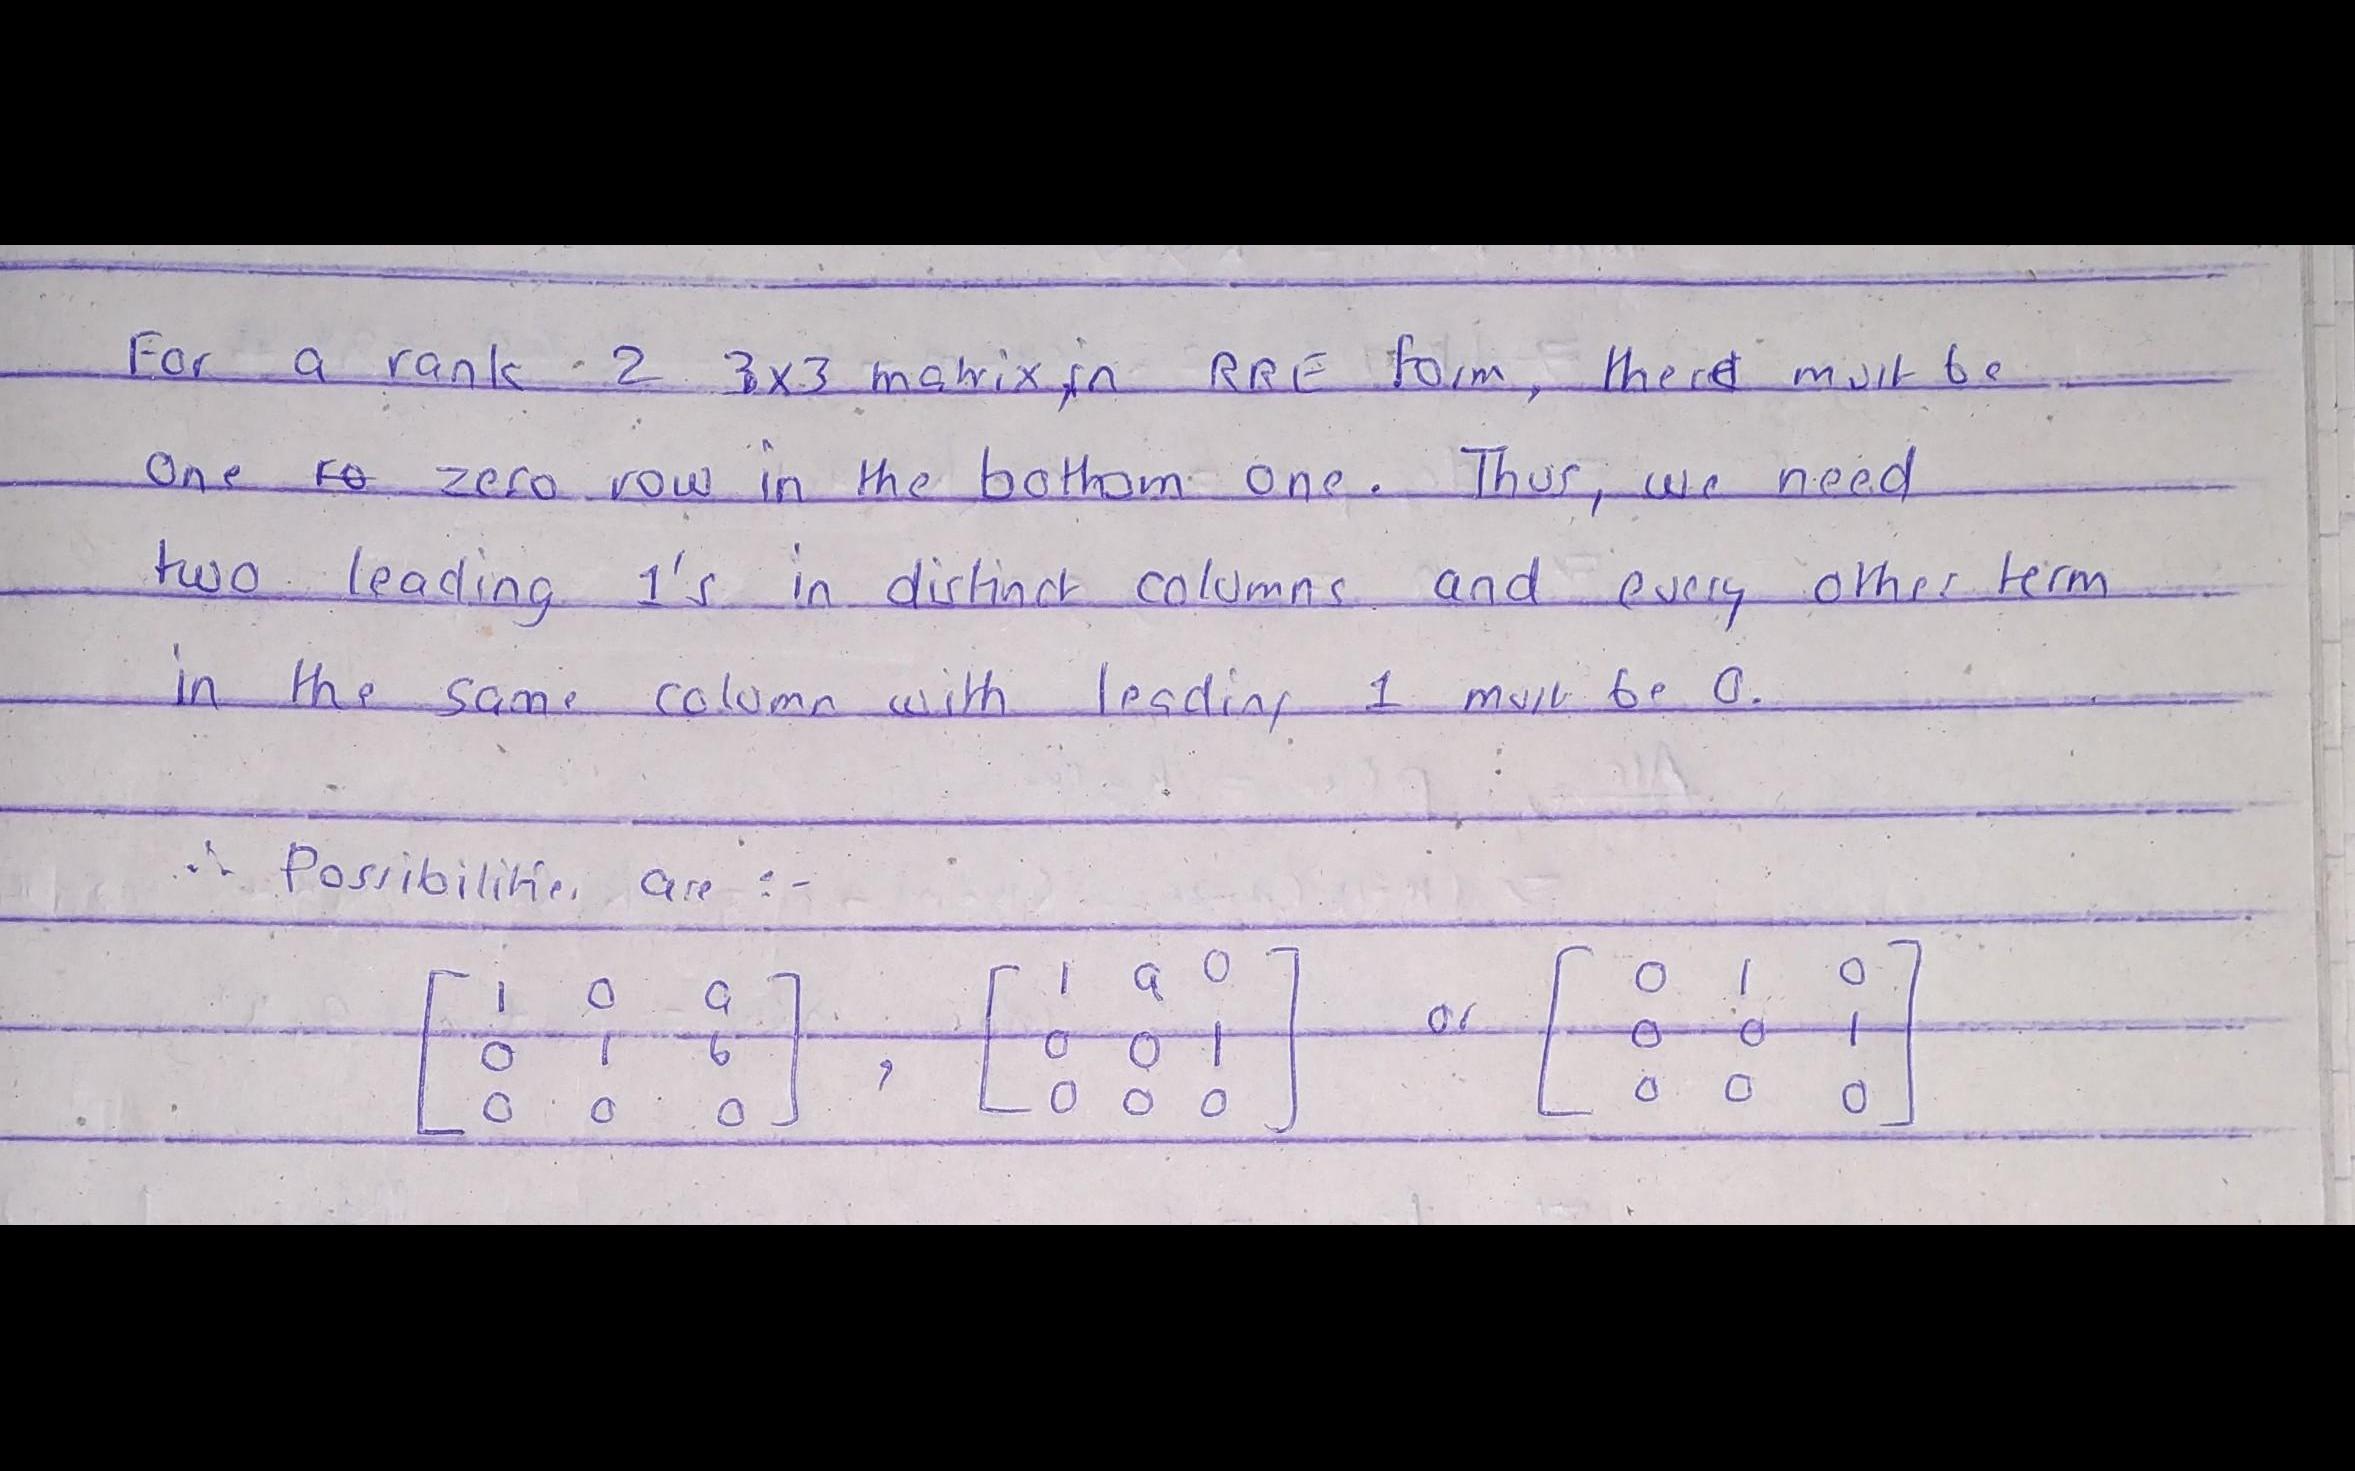 For a rank 2 3x3 matrix, in RRE form, there must be
One zero row in the bottom one. Thus, we need
two leading 1's in distinct columns and every other term
in the same column with leading 1 must be 0.
∴ Possibilities are :-
[1 0 a] [1 a 0] [0 1 0]
[0 1 b] , [0 0 1] or [0 0 1]
[0 0 0] [0 0 0] [0 0 0]